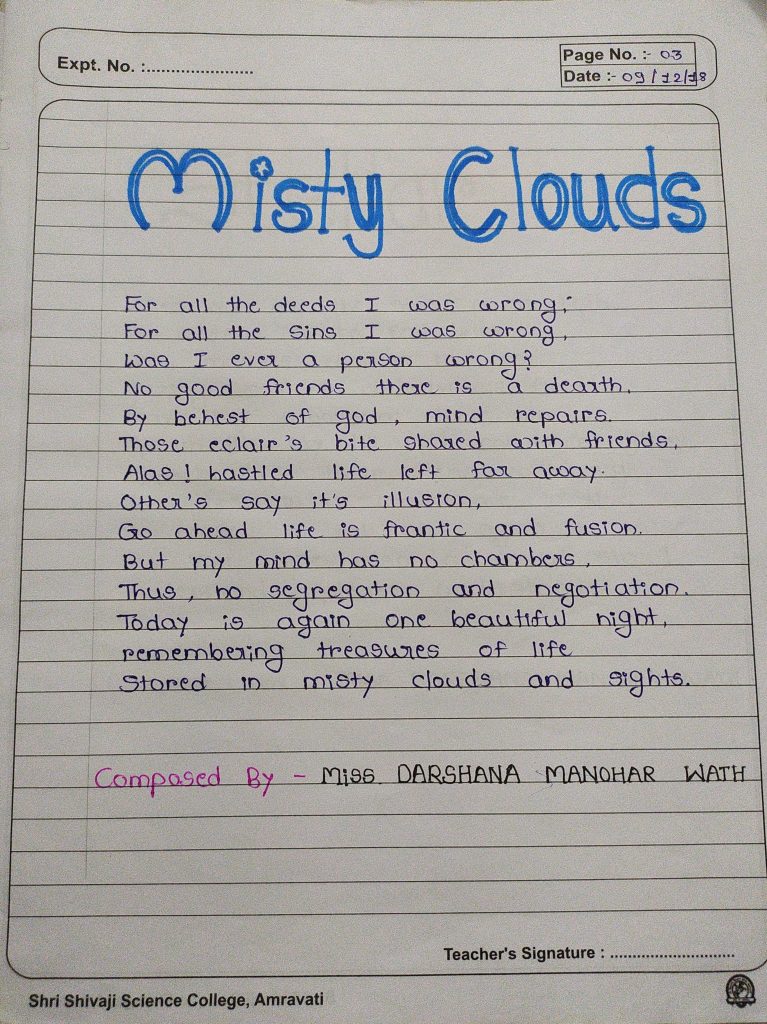 Expt. No. :......................
Page No. :- 03
Date :- 09/12/18
Misty Clouds
For all the deeds I was wrong;
For all the sins I was wrong,
Was I ever a person wrong?
No good friends there is a dearth.
By behest of god, mind repairs.
Those eclair's bite shared with friends,
Alas! hastled life left far away.
Other's say it's illusion,
Go ahead life is frantic and fusion.
But my mind has no chambers,
Thus, no segregation and negotiation.
Today is again one beautiful night,
remembering treasures of life
Stored in misty clouds and sights.
Composed By - Miss. DARSHANA MANOHAR WATH
Teacher's Signature : ............................
Shri Shivaji Science College, Amravati